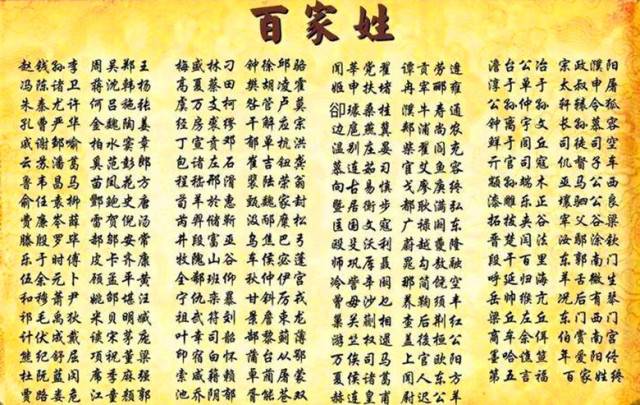 百家姓
赵钱孙李 周吴郑王 梅盛林刁 钟徐邱骆 闻莘党翟 谭贡劳逄 澹台公冶 宗政濮阳
冯陈褚卫 蒋沈韩杨 高夏蔡田 樊胡凌霍 姬申扶堵 冉宰郦雍 淳于单于 太叔申屠
朱秦尤许 何吕施张 虞万支柯 昝管卢莫 郤璩桑桂 濮牛寿通 公孙仲孙 轩辕令狐
孔曹严华 金魏陶姜 经房裘缪 干解应宗 边扈燕冀 郏浦尚农 钟离宇文 长孙慕容
戚谢邹喻 柏水窦章 丁宣贲邓 郁单杭洪 温别庄晏 柴瞿阎充 鲜于闾丘 司徒司空
云苏潘葛 奚范彭郎 包诸左石 崔吉钮龚 慕连茹习 宦艾鱼容 亓官司寇 仉督子车
鲁韦昌马 苗凤花方 程嵇邢滑 裴陆荣翁 向古易慎 戈廖庾终 颛孙端木 巫马公西
俞任袁柳 酆鲍史唐 荀羊於惠 甄曲家封 暨居衡步 都耿满弘 漆雕乐正 壤驷公良
费廉岑薛 雷贺倪汤 芮羿储靳 汲邴糜松 匡国文寇 广禄阙东 拓跋夹谷 宰父谷梁
滕殷罗毕 郝邬安常 井段富巫 乌焦巴弓 欧殳沃利 蔚越夔隆 晋楚闫法 汝鄢涂钦
乐于时傅 皮卞齐康 牧隗山谷 车侯宓蓬 师巩厍聂 晁勾敖融 段干百里 东郭南门
伍余元卜 顾孟平黄 全郗班仰 秋仲伊宫 冷訾辛阚 那简饶空 呼延归海 羊舌微生
和穆萧尹 姚邵湛汪 宁仇栾暴 甘钭厉戎 曾毋沙乜 养鞠须丰 岳帅缑亢 况后有琴
祁毛禹狄 米贝明臧 祖武符刘 景詹束龙 巢关蒯相 查后荆红 梁丘左丘 东门西门
计伏成戴 谈宋茅庞 叶幸司韶 郜黎蓟薄 游竺权逯 盖益桓公 商牟佘佴 伯赏南宫
熊纪舒屈 项祝董梁 印宿白怀 蒲邰从鄂 万俟司马 上官欧阳 墨哈谯笪 年爱阳佟
杜阮蓝闵 席季麻强 索咸籍赖 卓蔺屠蒙 夏侯诸葛 闻人东方 第五言福 百家姓终
贾路娄危 江童颜郭 池乔阴鬱 胥能苍双 赫连皇甫 尉迟公羊